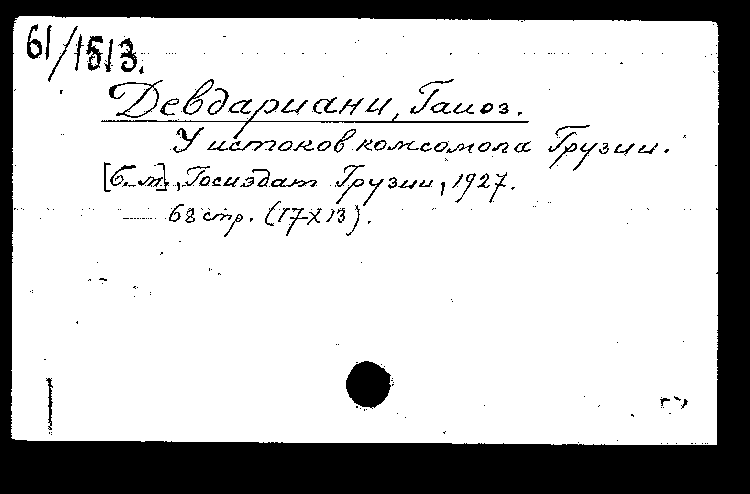 61/1513.
Девдариани, Гаиоз.
У истоков комсомола Грузии.
[б.м], Госиздат Грузии, 1927.
— 68 стр. (17X13).